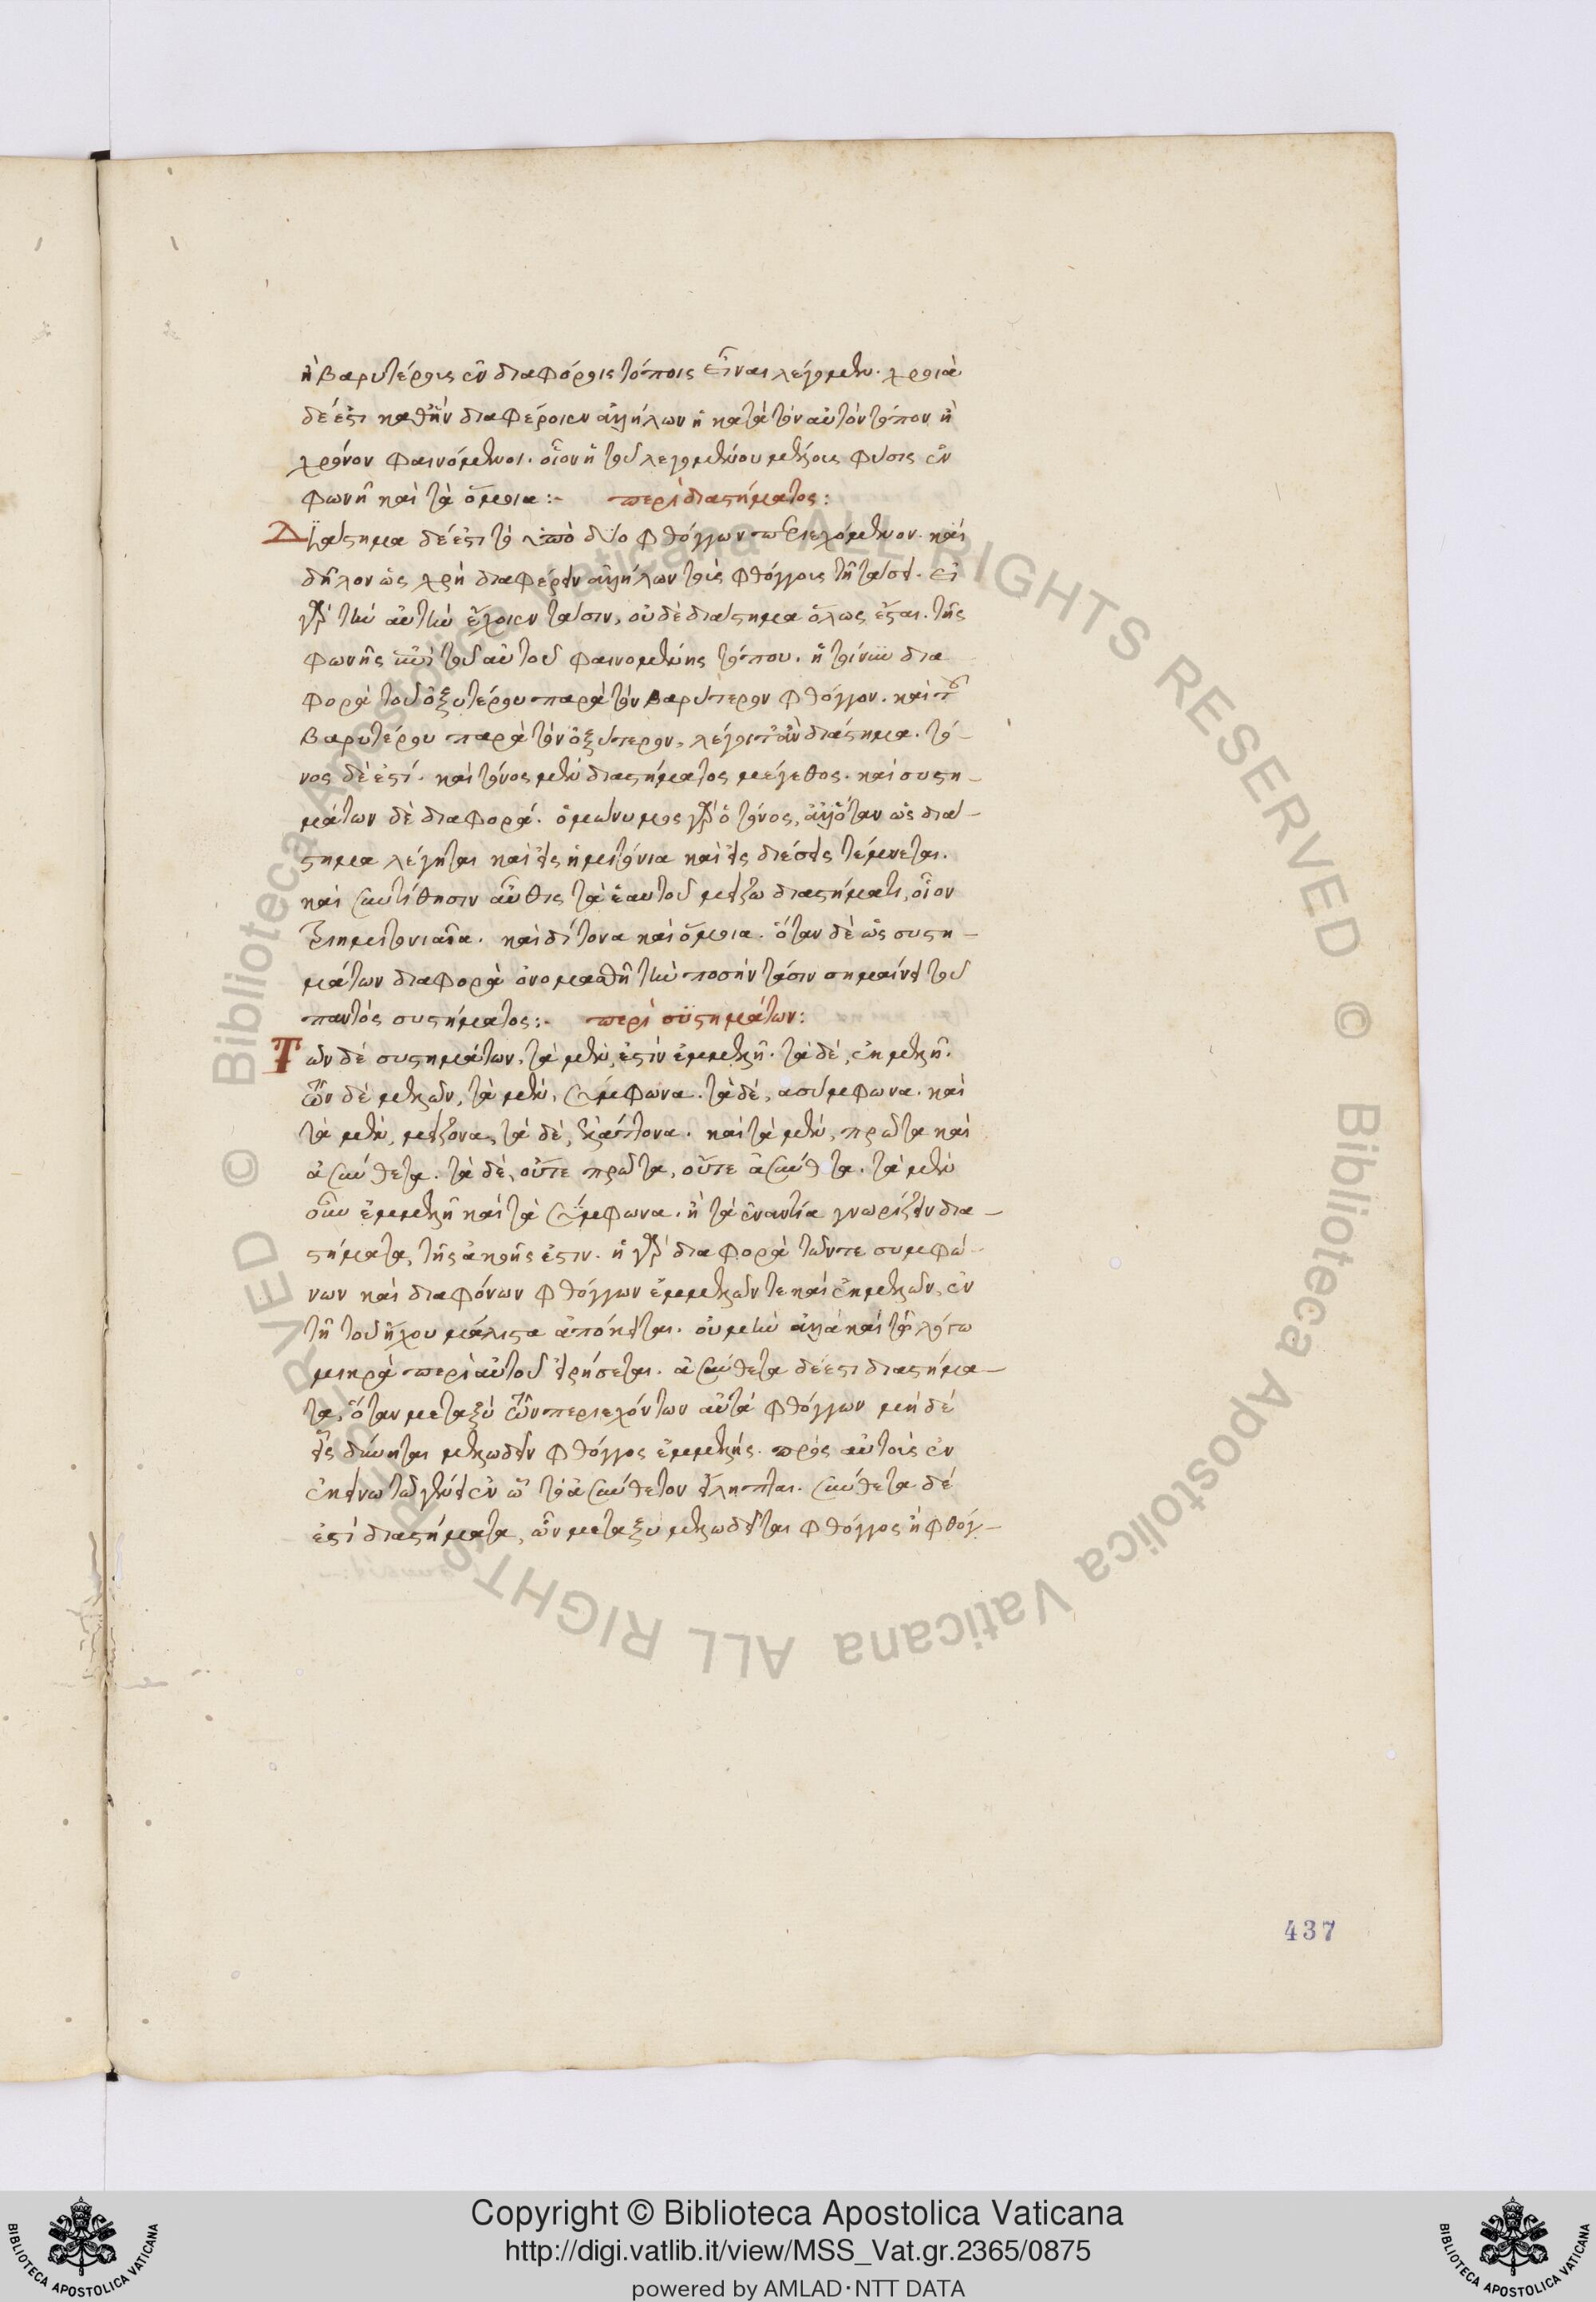 ἢ βαρυτέροις ἐν διαφόροις τόποις εἶναι λέγομεν. χροιὰ
δέ ἐστι καθ' ἣν διαφέροιεν ἀλλήλων ἢ κατὰ τὸν αὐτὸν τόπον ἢ
χρόνον φαινόμενοι. οἷον ἡ τοῦ λεγομένου μέλους φύσις ἐν
φωνῇ καὶ τὰ ὅμοια :- περὶ διαστήματος :
Διάστημα δέ ἐστι τὸ ὑπὸ δύο φθόγγων περιεχόμενον. καὶ
δῆλον ὡς χρὴ διαφέρειν ἀλλήλων τοὺς φθόγγους τῇ τάσει. εἰ
γὰρ τὴν αὐτὴν ἔχοιεν τάσιν, οὐδὲ διάστημα ὅλως ἔσται. τῆς
φωνῆς ἐπὶ τοῦ αὐτοῦ φαινομένης τόπου. ἡ τοίνυν δια
φορὰ τοῦ ὀξυτέρου παρὰ τὸν βαρύτερον φθόγγον. καὶ τοῦ
βαρυτέρου παρὰ τὸν ὀξύτερον, λέγοιτ' ἂν διάστημα. τό-
νος δέ ἐστι. καὶ τόνος μὲν διαστήματος μέγεθος. καὶ συστη-
μάτων δὲ διαφορά. ὁμώνυμος γὰρ ὁ τόνος, ἀλλ' ὅταν ὡς διά-
στημα λέγηται καὶ εἰς ἡμιτόνια καὶ εἰς διέσεις τέμνεται.
καὶ συντίθησιν αὖθις τὰ ἑαυτοῦ μείζω διαστήματι, οἷον
τριημιτονιαῖα. καὶ δίτονα καὶ ὅμοια. ὅταν δὲ ὡς συστη-
μάτων διαφορὰ ὀνομασθῇ τὴν ποσὴν τάσιν σημαίνει τοῦ
παντὸς συστήματος :- περὶ συστημάτων :
Τῶν δὲ συστημάτων, τὰ μέν, ἐστὶν ἐμμελῆ. τὰ δέ, ἐκμελῆ.
τῶν δὲ μελῶν, τὰ μέν, σύμφωνα. τὰ δέ, ἀσύμφωνα. καὶ
τὰ μέν, μείζονα, τὰ δέ, ἐλάττονα. καὶ τὰ μέν, πρῶτα καὶ
ἀσύνθετα. τὰ δέ, οὔτε πρῶτα, οὔτε ἀσύνθετα. τὰ μὲν
οὖν ἐμμελῆ καὶ τὰ σύμφωνα. ἢ τὰ ἐναντία γνωρίζειν δια-
στήματα, τῆς ἀκοῆς ἐστιν. ἡ γὰρ διαφορὰ τῶν τε συμφώ-
νων καὶ διαφόνων φθόγγων ἐμμελῶν τε καὶ ἐκμελῶν, ἐν
τῇ τοῦ ἤχου μάλιστα ἀπόκειται. οὐ μὴν ἀλλὰ καὶ τῷ λόγῳ
μικρὰ περὶ αὐτοῦ εἰρήσεται. ἀσύνθετα δέ ἐστι διαστήμα-
τα, ὅταν μεταξὺ τῶν περιεχόντων αὐτὰ φθόγγων μηδὲ
εἷς δύνηται μελωδεῖν φθόγγος ἐμμελής. πρὸς αὐτοὺς ἐν
ἐκείνῳ τῷ γένει ἐν ᾧ τὸ ἀσύνθετον εἴληπται. σύνθετα δέ
ἐστι διαστήματα, ὧν μεταξὺ μελωδεῖται φθόγγος ἢ φθόγ-
437
© Biblioteca Apostolica Vaticana ALL RIGHTS RESERVED © Biblioteca Apostolica Vaticana ALL RIGHTS RESERVED
Copyright © Biblioteca Apostolica Vaticana
http://digi.vatlib.it/view/MSS_Vat.gr.2365/0875
powered by AMLAD·NTT DATA
BIBLIOTECA APOSTOLICA VATICANA
BIBLIOTECA APOSTOLICA VATICANA